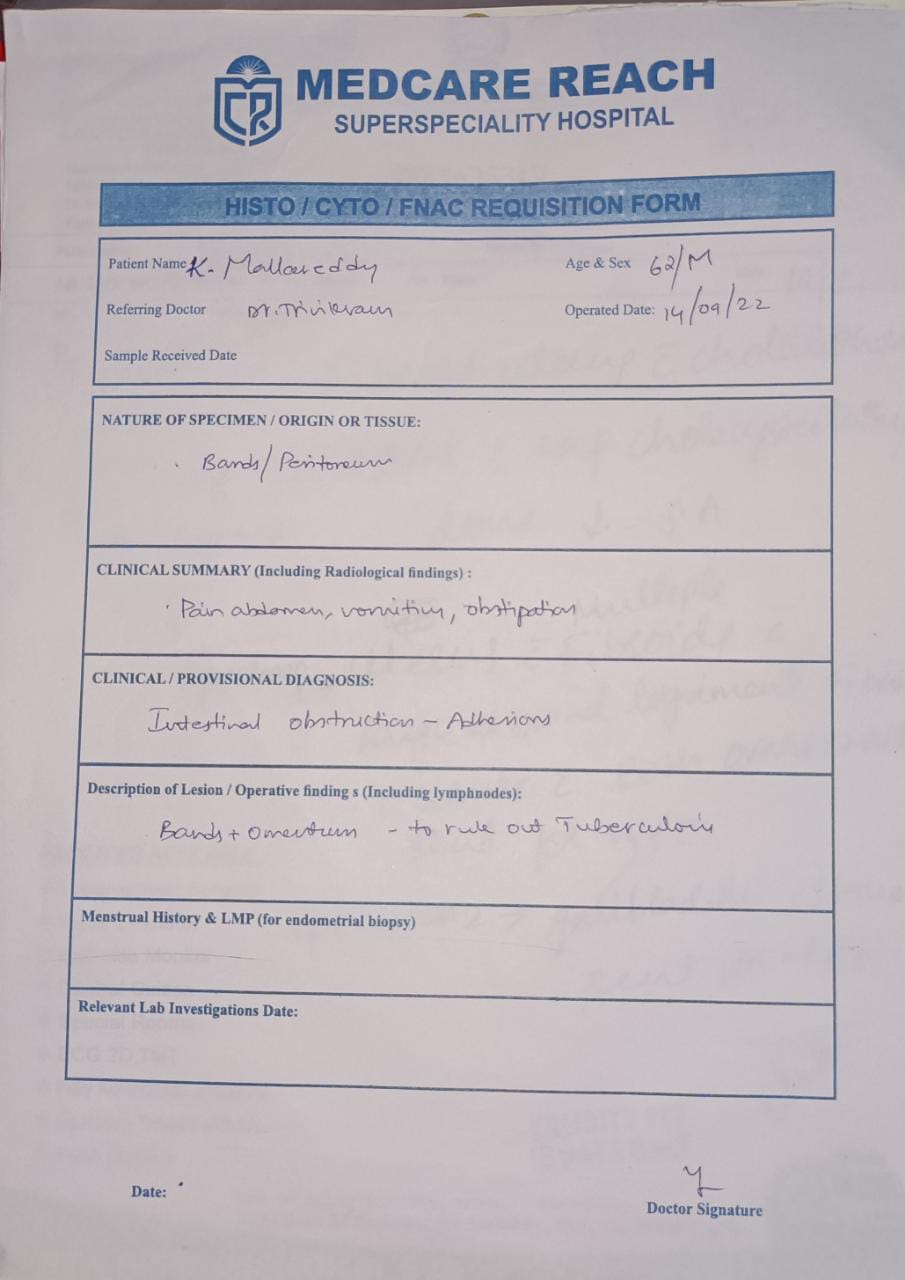 CR
MEDCARE REACH
SUPERSPECIALITY HOSPITAL
HISTO / CYTO / FNAC REQUISITION FORM
Patient Name K. Mallareddy Age & Sex 62/M
Referring Doctor Dr. Trivikram Operated Date: 14/09/22
Sample Received Date
NATURE OF SPECIMEN / ORIGIN OR TISSUE:
Bands/Peritoneum
CLINICAL SUMMARY (Including Radiological findings) :
Pain abdomen, vomiting, obstipation
CLINICAL / PROVISIONAL DIAGNOSIS:
Intestinal obstruction - Adhesions
Description of Lesion / Operative finding s (Including lymphnodes):
Bands + Omentum - to rule out Tuberculosis
Menstrual History & LMP (for endometrial biopsy)
Relevant Lab Investigations Date:
Date:
Doctor Signature